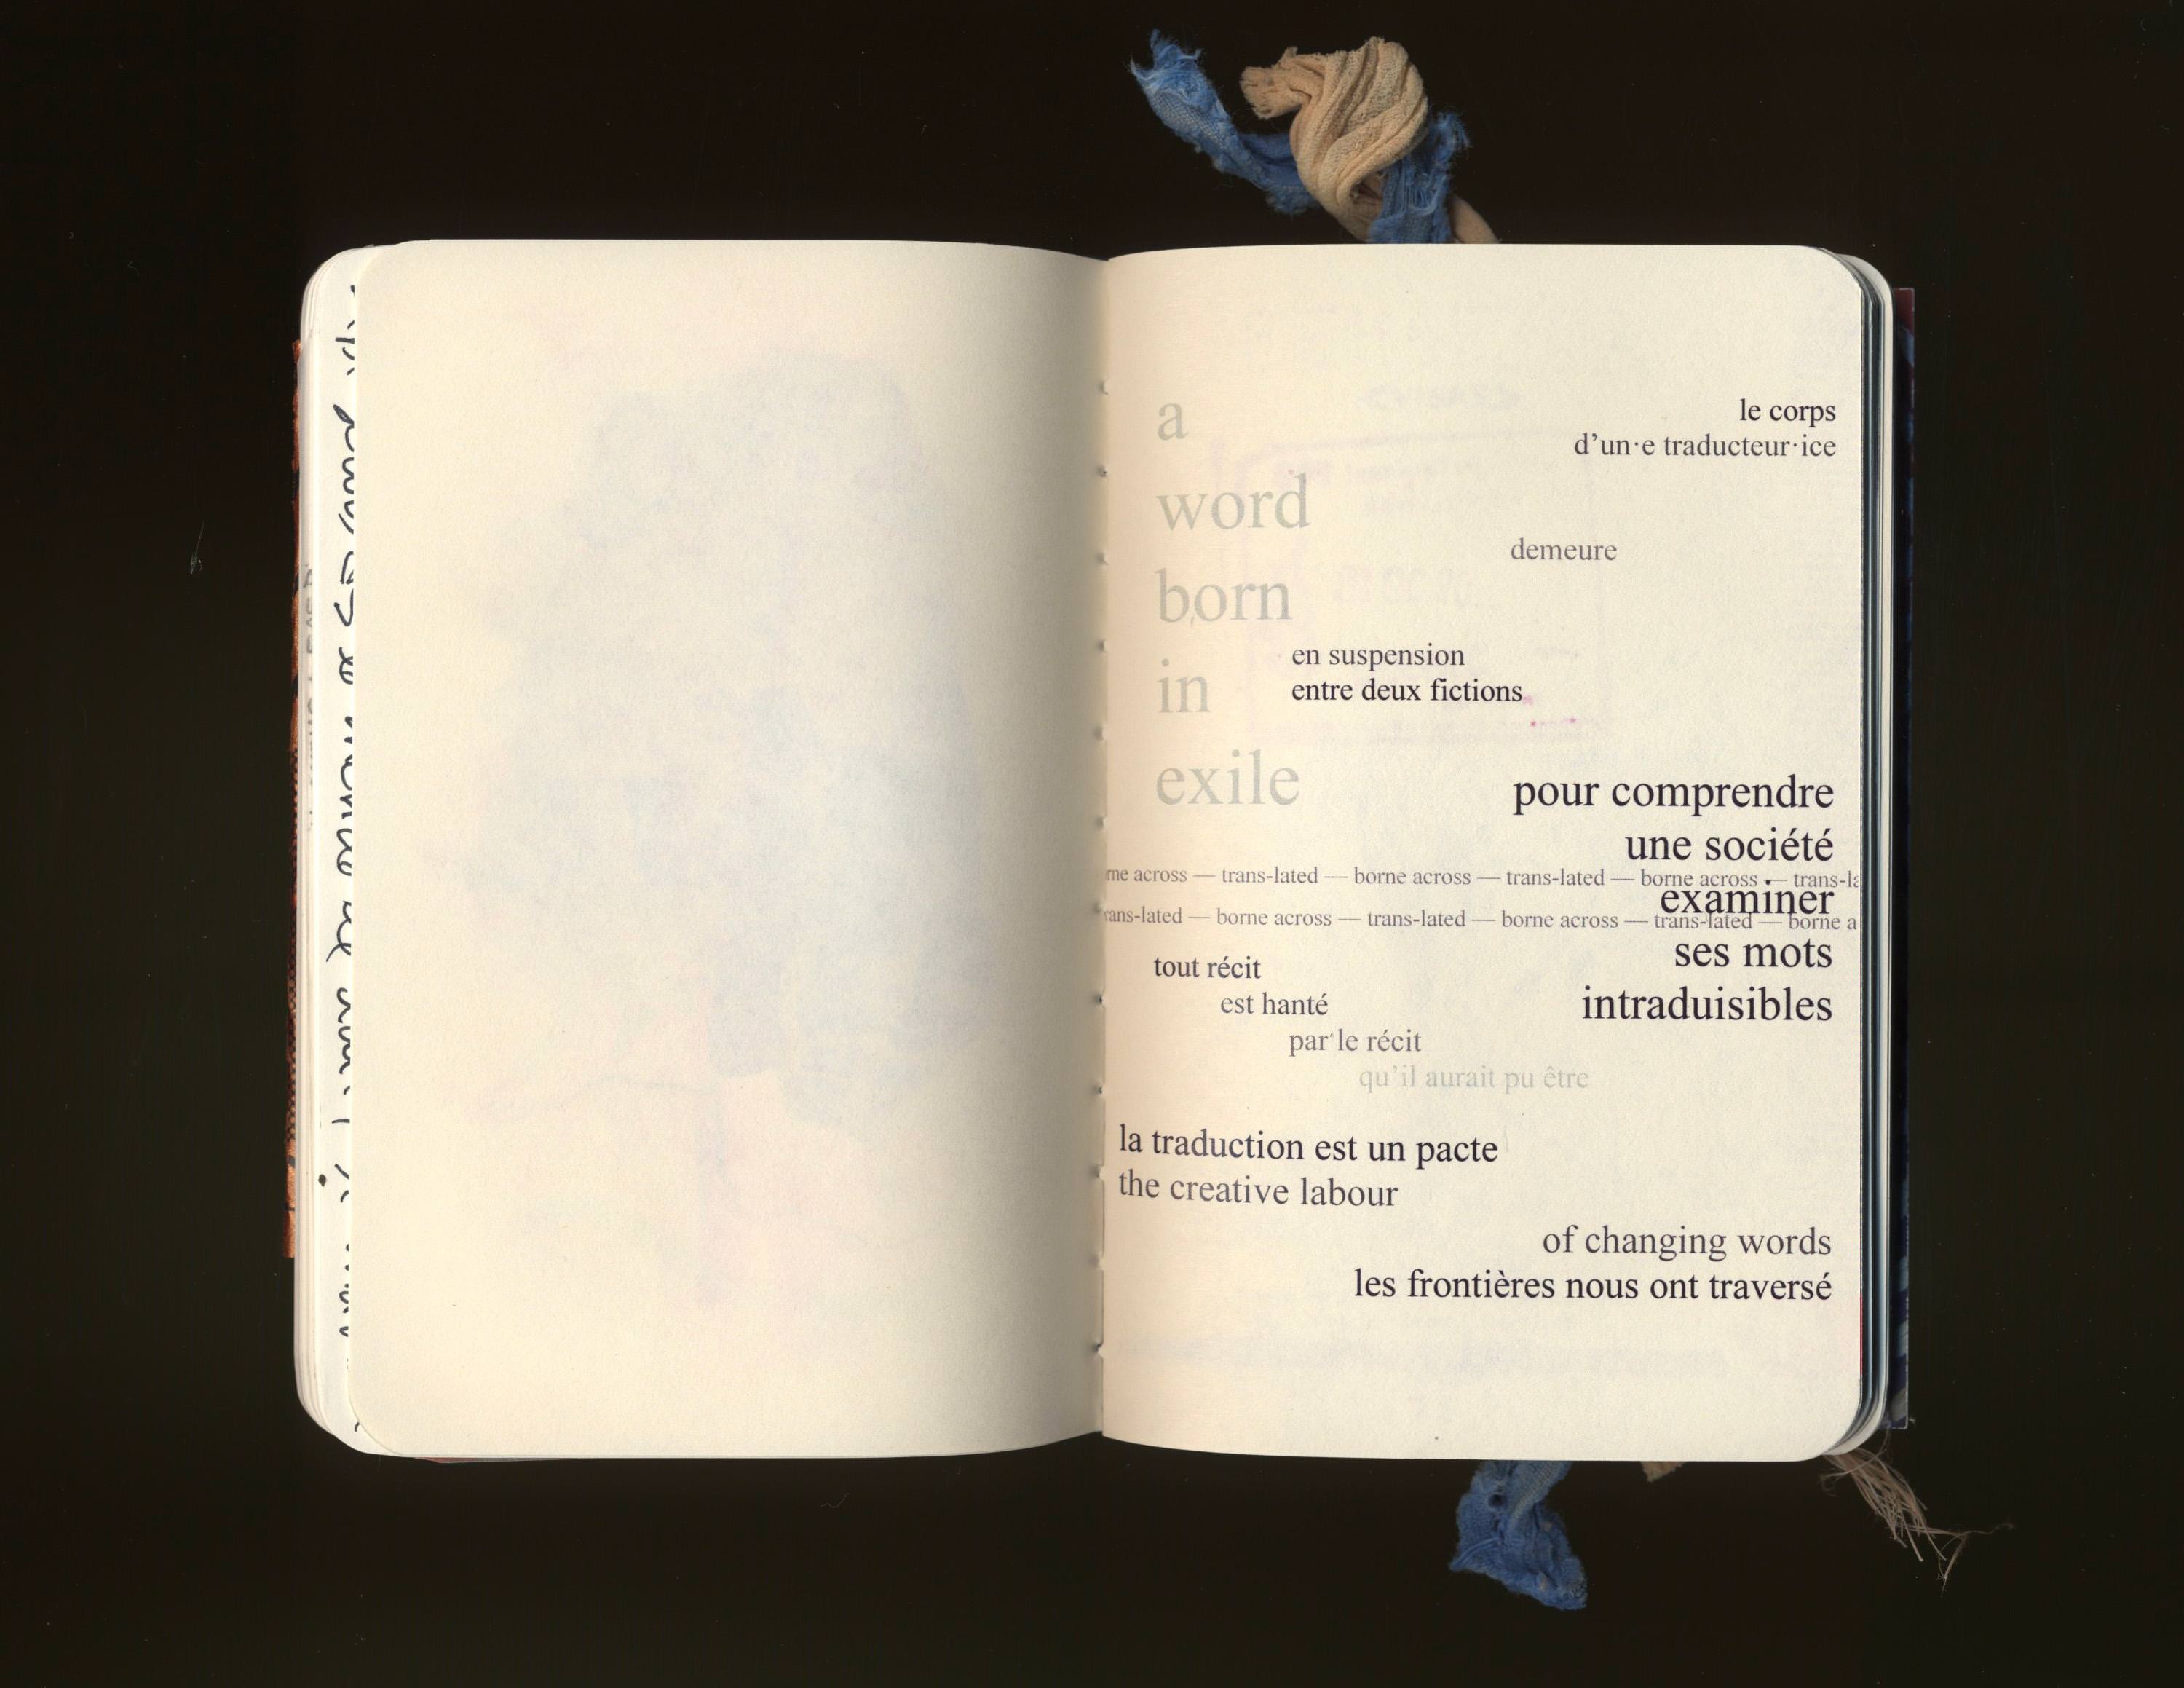 a
word
born
in
exile
le corps
d’un·e traducteur·ice
demeure
en suspension
entre deux fictions
pour comprendre
une société
examiner
ses mots
intraduisibles
across — trans-lated — borne across — trans-lated — borne across — trans-la
ans-lated — borne across — trans-lated — borne across — trans-lated — borne a
tout récit
est hanté
par le récit
qu’il aurait pu être
la traduction est un pacte
the creative labour
of changing words
les frontières nous ont traversé